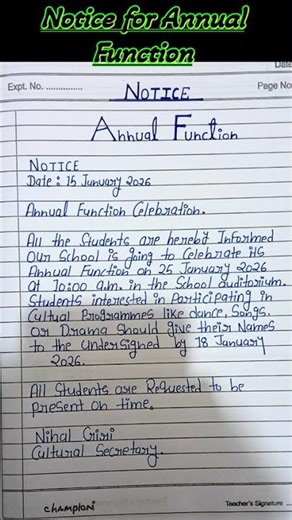 Notice for Annual
Function
Date
Expt. No. ...............
Page No
NOTICE
Annual Function
NOTICE
Date : 15 Junuary 2026
Annual Function Celebration.
All the Students are hereby Informed
Our School is going to Celebrate its
Annual Function on 25 January 2026
at 10:00 a.m. in the School auditorium.
Students interested in Participating in
Cultual Programmes like dance, Songs,
Or Drama Should give their Names
to the Undersigned by 18 January
2026.
All Students are Requested to be
present on time.
Nihal Giri
Cultural Secretary.
Champion
Teacher's Signature